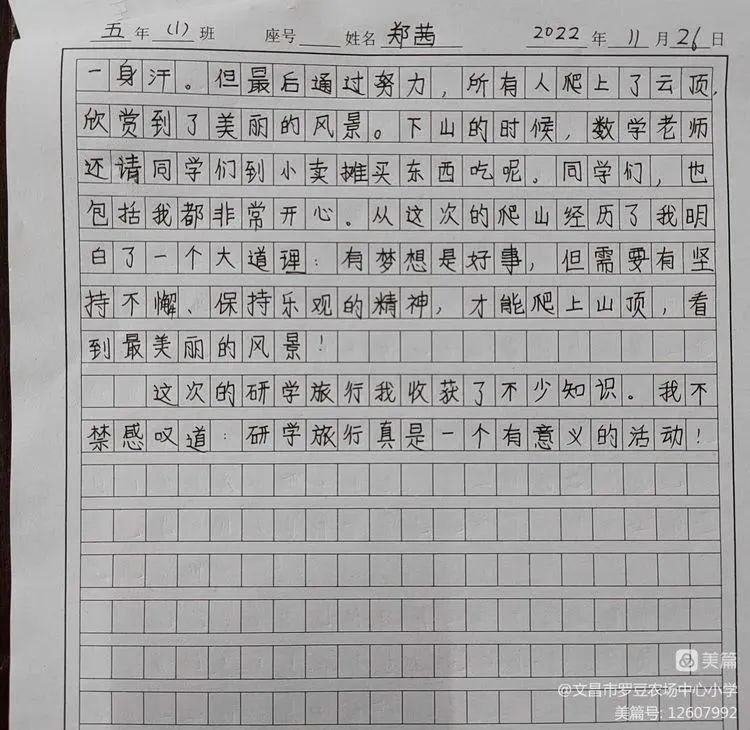 五年(1)班 座号 姓名 郑茜 2022年11月26日
一身汗。但最后通过努力，所有人爬上了云顶，
欣赏到了美丽的风景。下山的时候，数学老师
还请同学们到小卖摊买东西吃呢。同学们，也
包括我都非常开心。从这次的爬山经历了我明
白了一个大道理：有梦想是好事，但需要有坚
持不懈、保持乐观的精神，才能爬上山顶，看
到最美丽的风景！
这次的研学旅行我收获了不少知识。我不
禁感叹道：研学旅行真是一个有意义的活动！
美篇
@文昌市罗豆农场中心小学
美篇号: 12607992